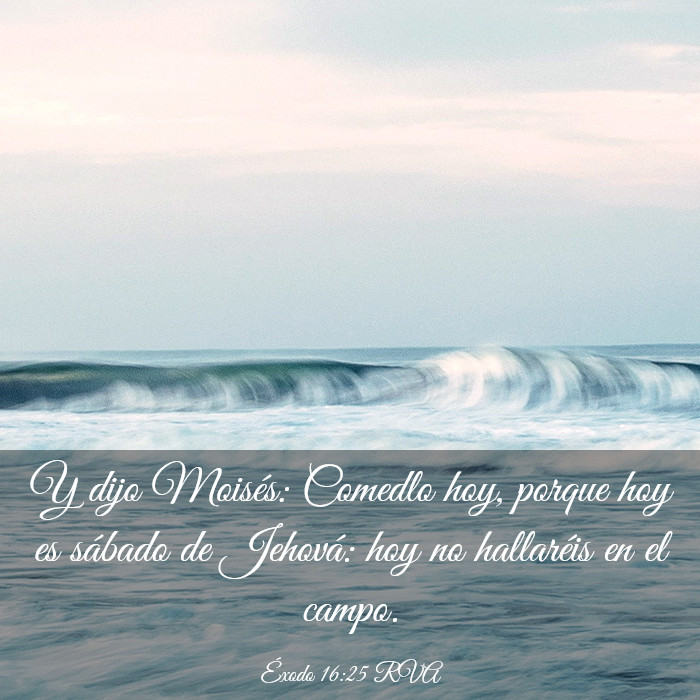 Y dijo Moisés: Comedlo hoy, porque hoy
es sábado de Jehová: hoy no hallaréis en el
campo.
Éxodo 16:25 RVA